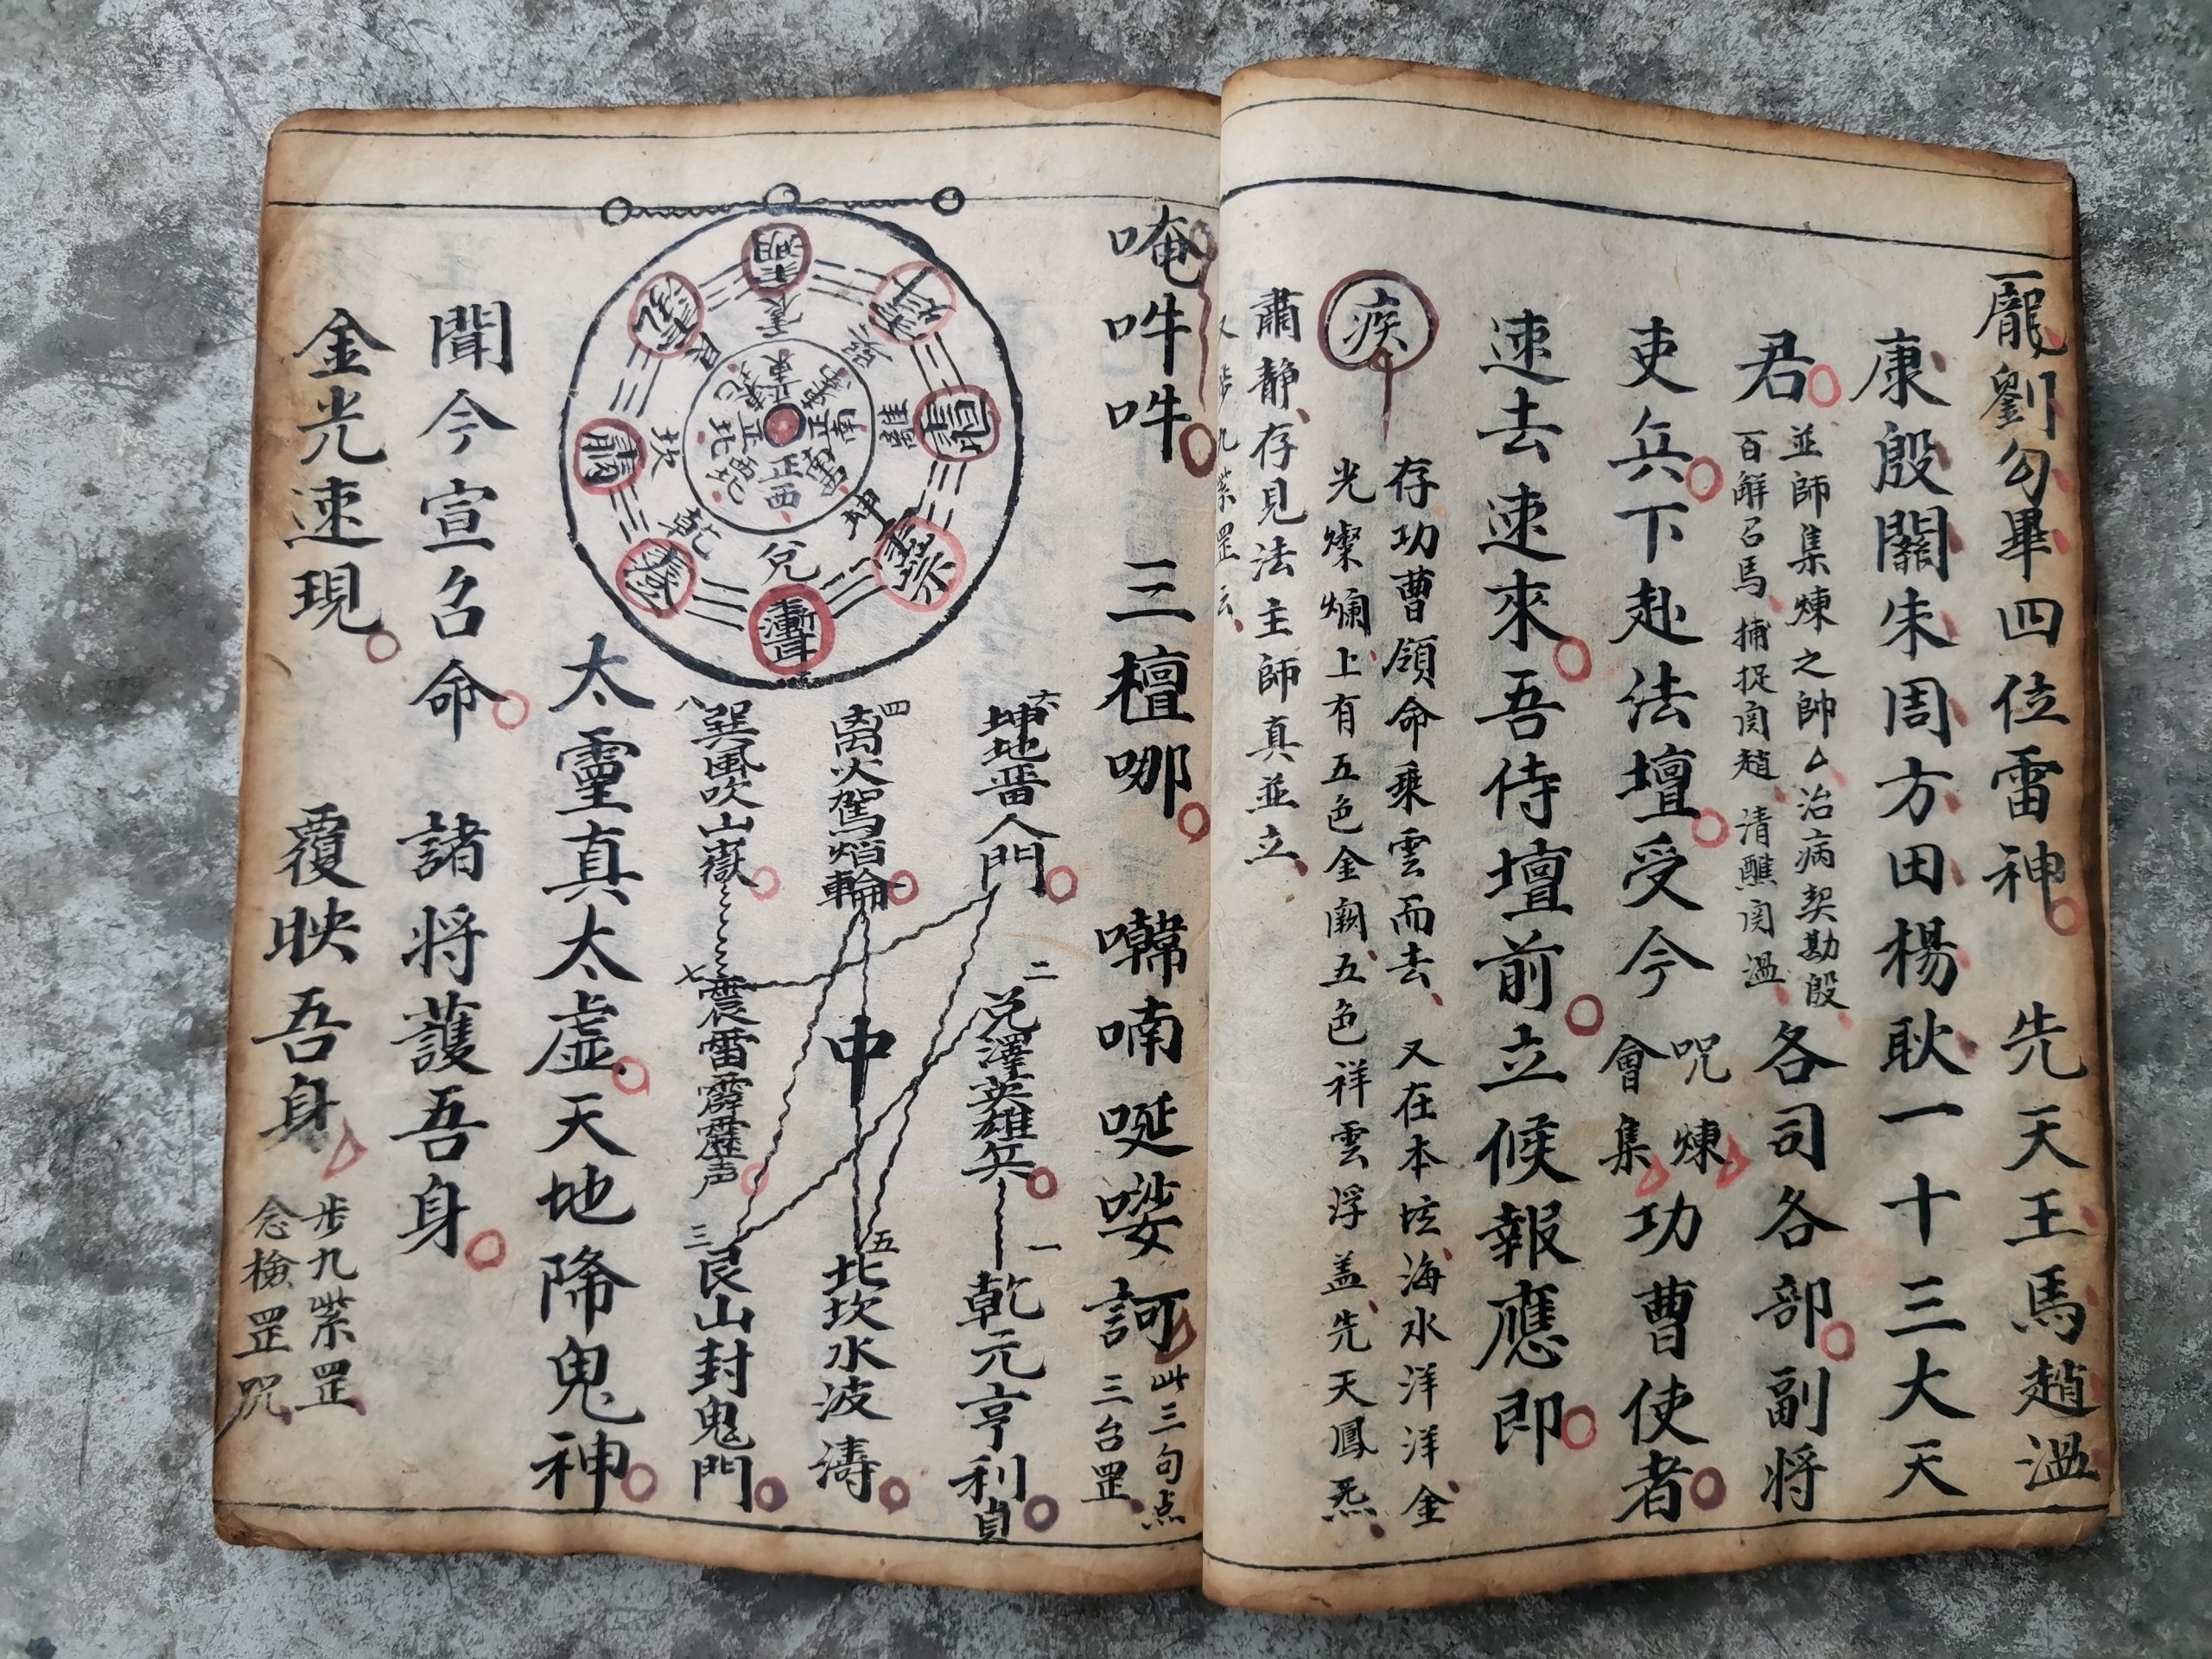 龐劉勾畢四位雷神 先天王馬趙溫
康殷關朱周方田楊耿一十三大天
君 並師集煉之帥 治病契勘殷
百解召馬 捕捉関趙 清醮関溫
各司各部副将
吏兵下赴法壇受今 呪煉
會集
功曹使者
速去速來吾侍壇前立候報應即
疾
存功曹領命乘雲而去 又在本坛海水洋洋金
光燦爛上有五色金闕五色祥雲浮盖先天鳳炁
肅静存見法主師真並立
九紫罡云
唵吽吽 三檀哪 喃哫 訶
此三句点
三台罡
震 正東
離 正南
坤
兌 正西
乾
坎 正北
艮
六 坤地晉人門
二 兑澤英雄兵
一 乾元亨利貞
四 离火駕焰輪
中
五 北坎水波濤
八 巽風吹山嶽
七 震雷霹靂声
三 艮山封鬼門
太靈真太虛天地降鬼神
聞今宣召命 諸将護吾身
金光速現 覆映吾身
步九紫罡
念檢罡咒